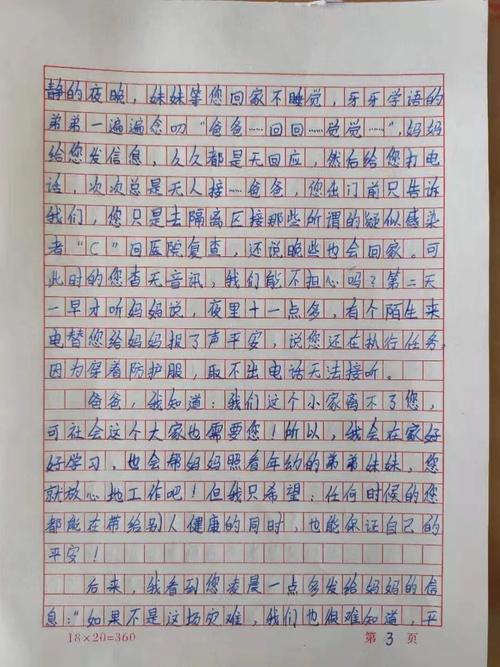 静的夜晚，妹妹等您回家不睡觉，牙牙学语的
弟弟一遍遍念叨“爸爸……回回……觉觉……”，妈妈
给您发信息，久久都是无回应，然后给您打电
话，次次总是无人接……爸爸，您出门前只告诉
我们，您只是去隔离区接那些所谓的疑似感染
者“C”回医院复查，还说晚些也会回家。可
此时的您杳无音讯，我们能不担心吗？第二天
一早才听妈妈说，夜里十一点多，有个陌生来
电替您给妈妈报了声平安，说您还在执行任务，
因为穿着防护服，取不出电话无法接听。
爸爸，我知道：我们这个小家离不了您，
可社会这个大家也需要您！所以，我会在家好
好学习，也会帮妈妈照看年幼的弟弟妹妹，您
就放心地工作吧！但我只希望：任何时候的您
都能在带给别人健康的同时，也能保证自己的
平安！
后来，我看到您凌晨一点多发给妈妈的信
息：“如果不是这场灾难，我们也很难知道，平
18×20=360 第 3 页